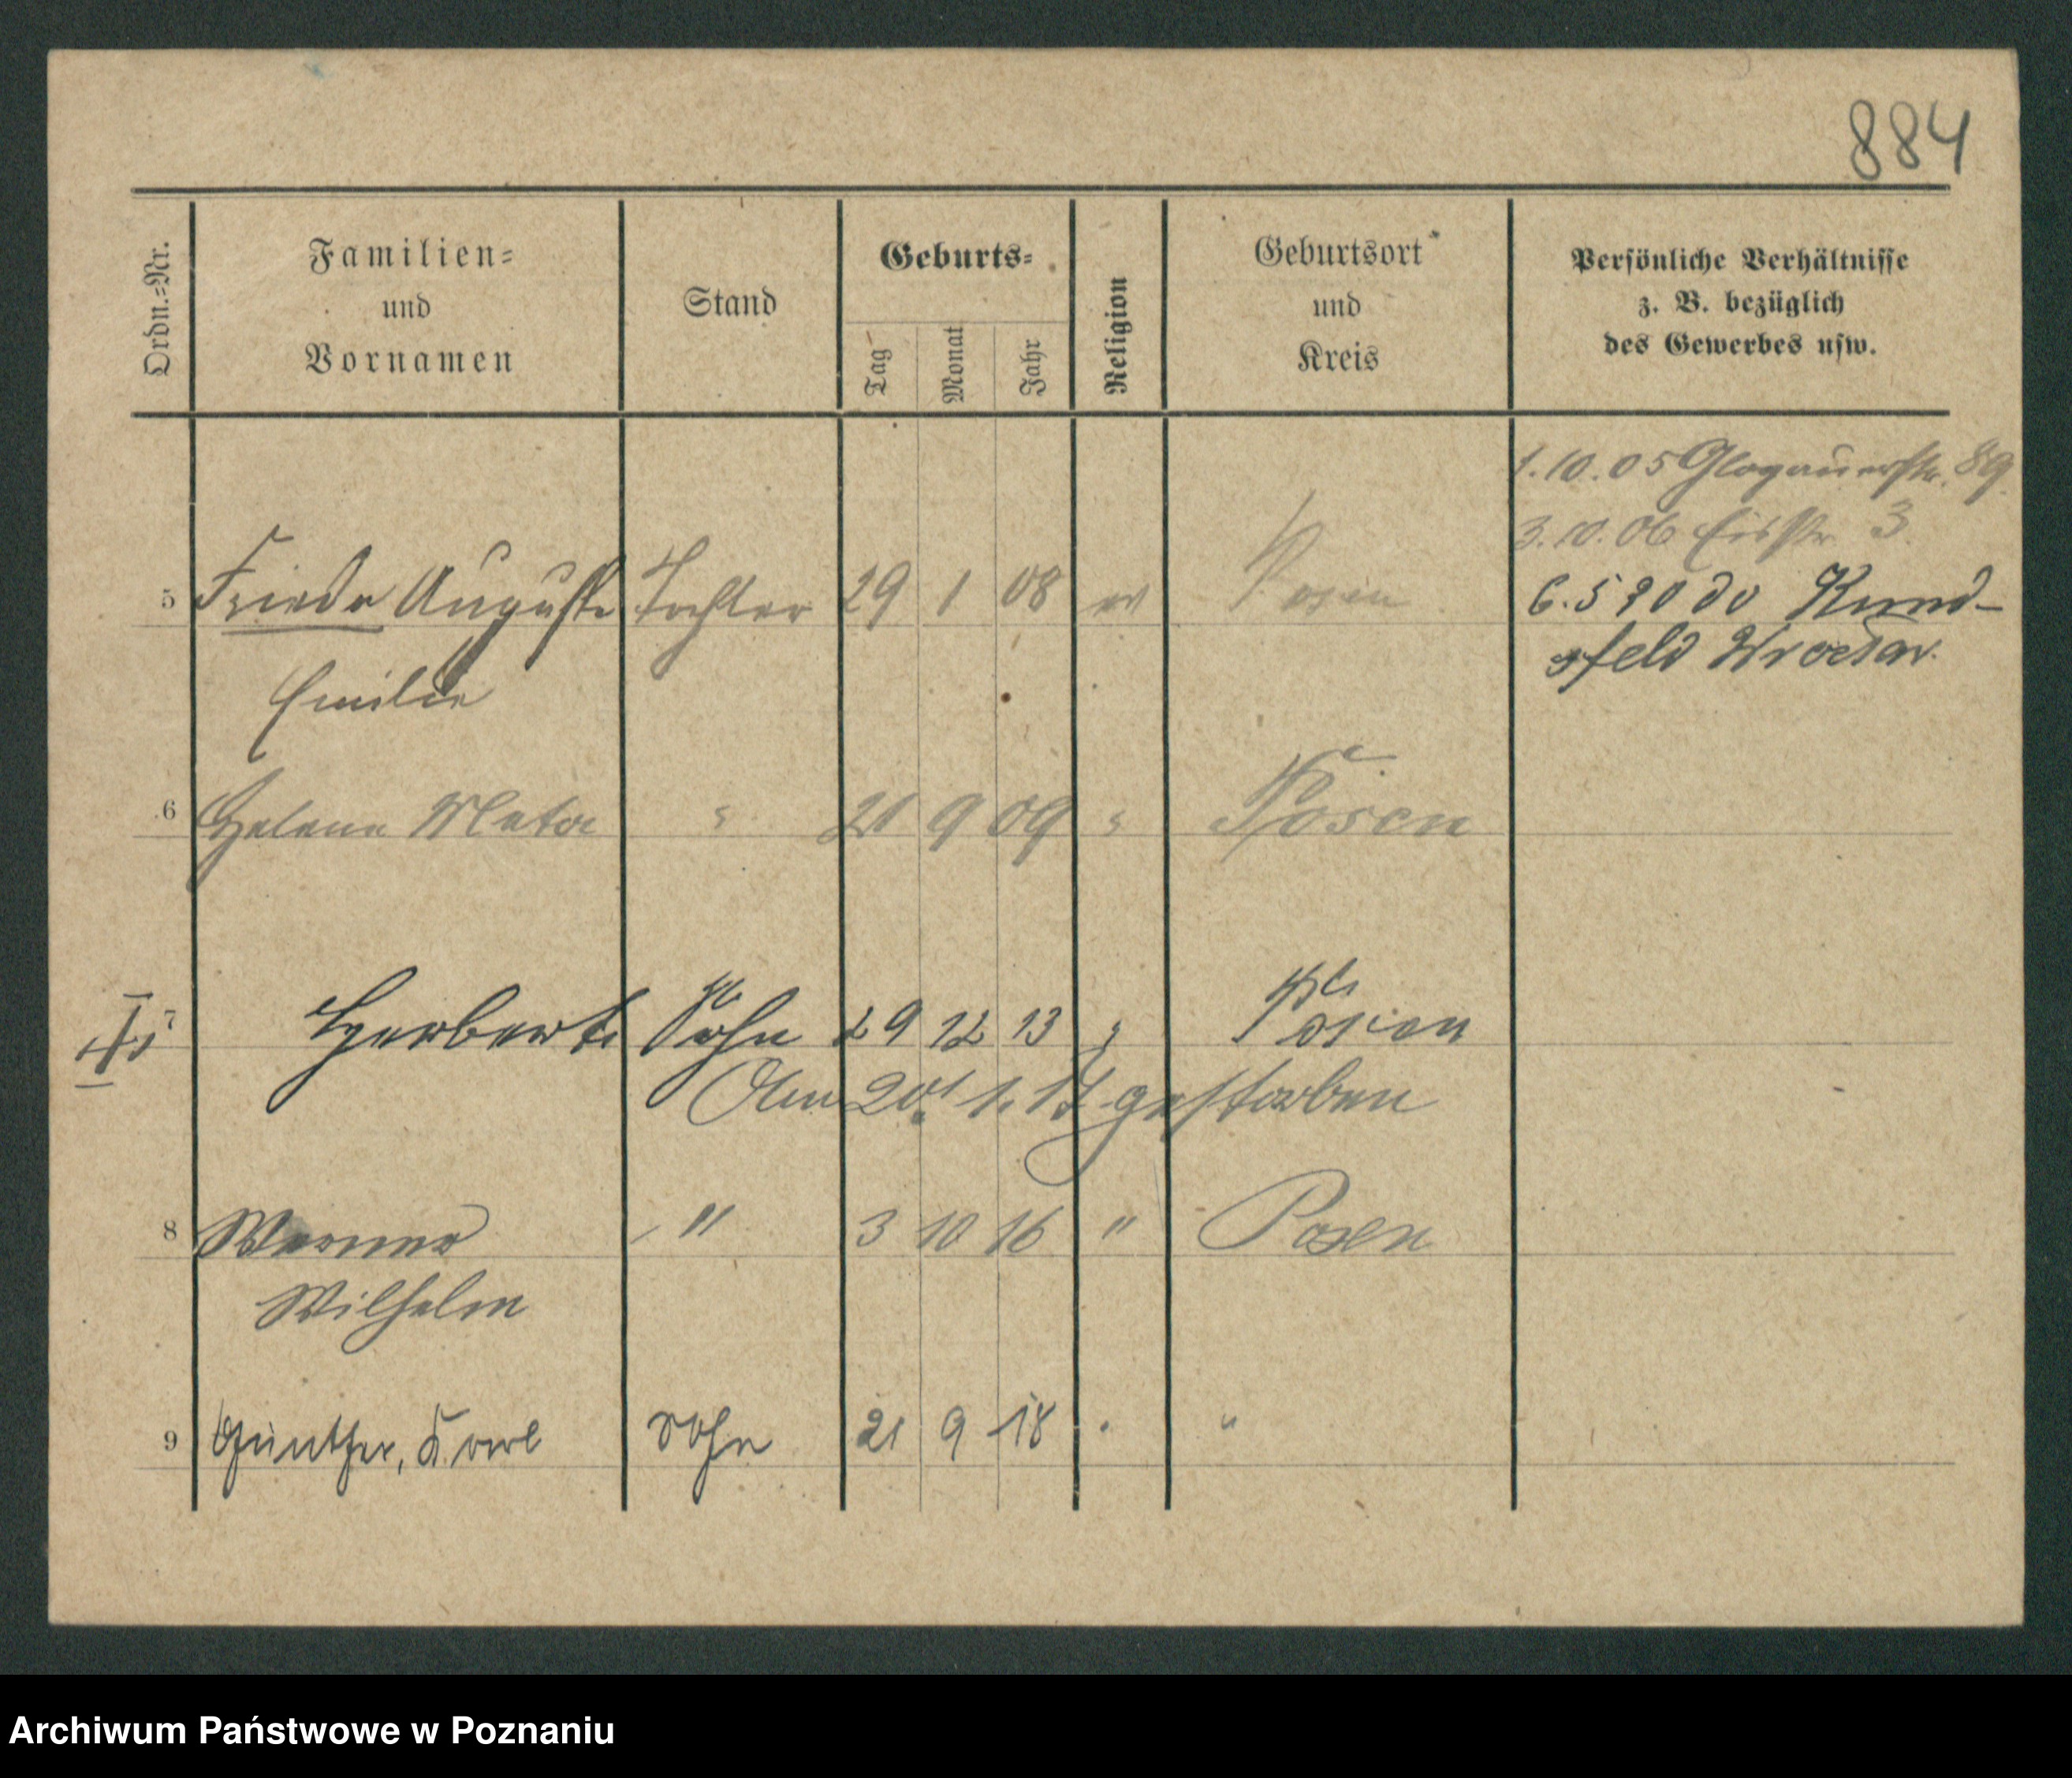 884
Ordn.=Nr.
Familien=
und
Vornamen
Stand
Geburts=
Tag
Monat
Jahr
Religion
Geburtsort
und
Kreis
Persönliche Verhältnisse
z. B. bezüglich
des Gewerbes usw.
1. 10. 05 Glogauerstr. 89.
3. 10. 06 Eisstr. 3.
5 Frieda Auguste Tochter 29 1 08 ev Posen
Emilie
6. 5 20 do Kund-
sfeld Wroclaw.
6 Helene Meta " 21 9 09 " Posen
7 Herbert Sohn 29 12 13 " Posen
Am 20. 1. 17 gestorben
8 Werner " 3 10 16 " Posen
Wilhelm
9 Günther, Karl Sohn 21 9 18 " "
Archiwum Państwowe w Poznaniu